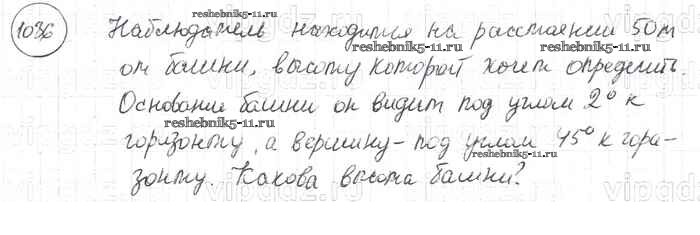 1036 Наблюдатель находится на расстоянии 50м
от башни, высоту которой хочет определить.
Основание башни он видит под углом 2° к
горизонту, а вершину - под углом 45° к гори-
зонту. Какова высота башни?
reshebnik5-11.ru
reshebnik5-11.ru
reshebnik5-11.ru
reshebnik5-11.ru
reshebnik5-11.ru
reshebnik5-11.ru
vipgdz